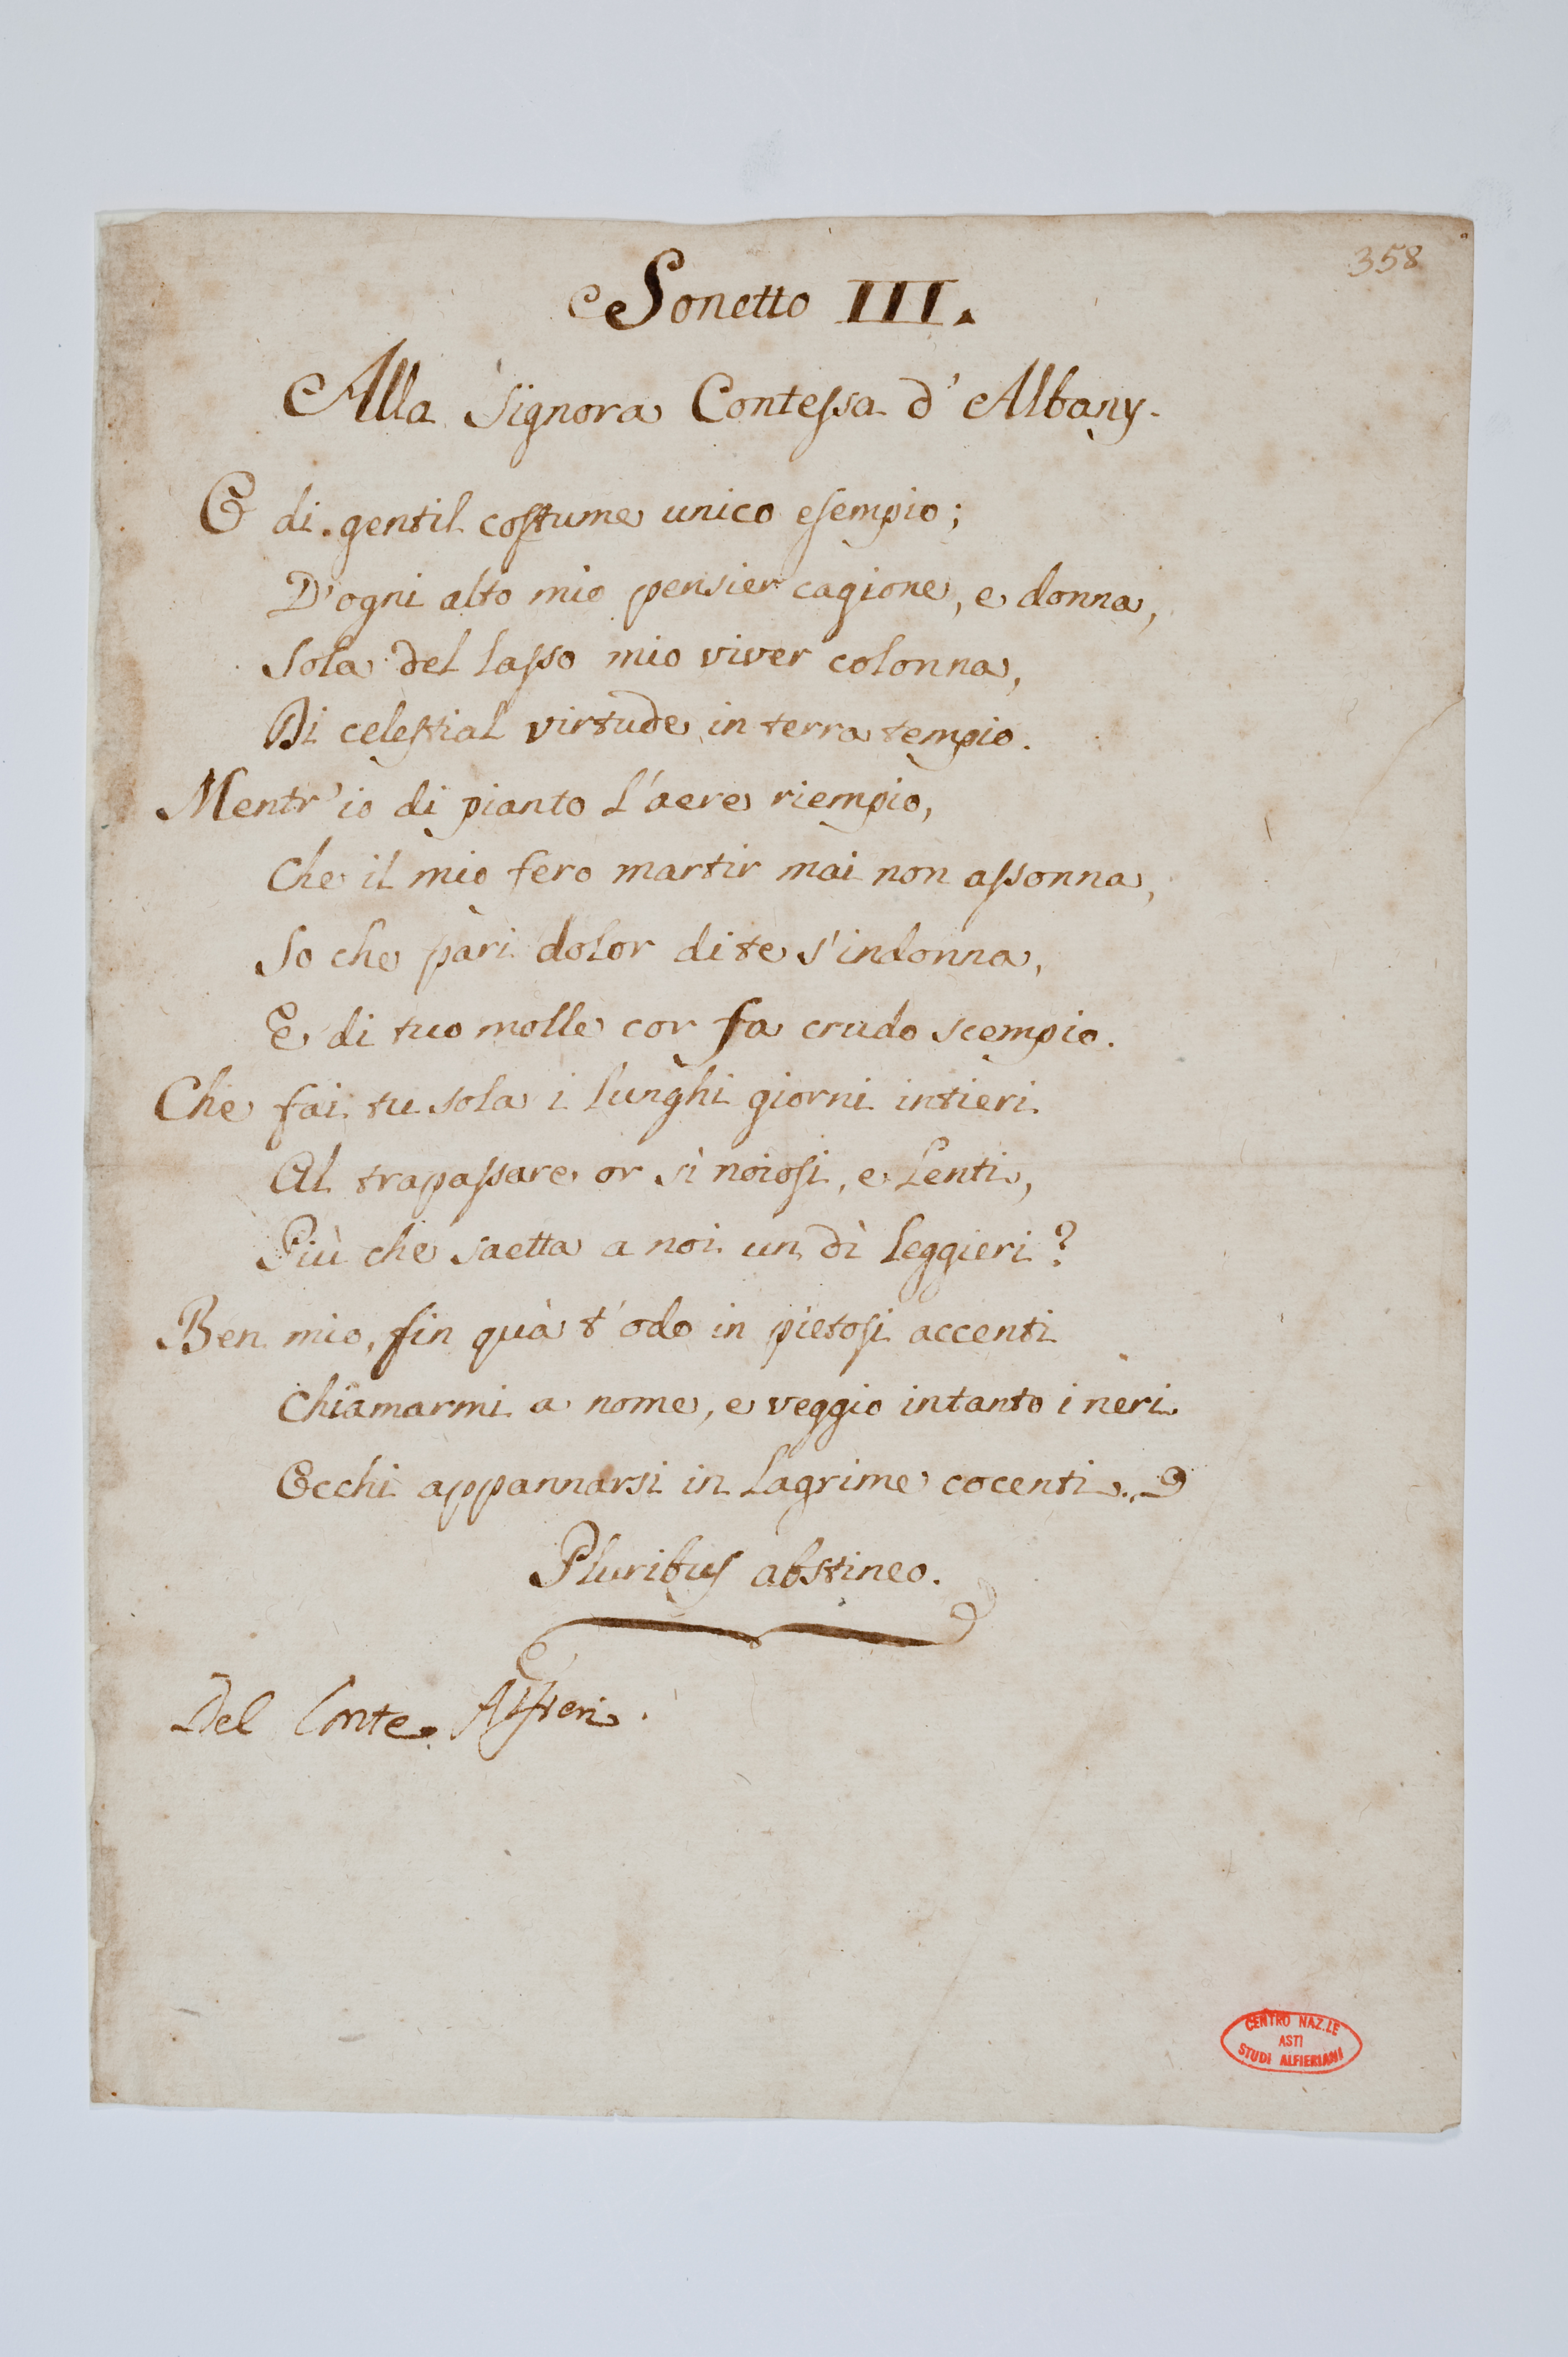 358
Sonetto III.
Alla Signora Contessa d'Albany.
O di gentil costume unico esempio;
D'ogni alto mio pensier cagione, e donna,
Sola del lasso mio viver colonna,
Di celestial virtude in terra tempio.
Mentr'io di pianto l'aere riempio,
Che il mio fero martir mai non assonna,
So che pari dolor di te s'indonna,
E di tuo molle cor fa crudo scempio.
Che fai tu sola i lunghi giorni intieri
Al trapassare or sì noiosi, e lenti,
Più che saetta a noi un dì leggieri?
Ben mio, fin quà t'odo in pietosi accenti
Chiamarmi a nome, e veggio intanto i neri
Occhi appannarsi in lagrime cocenti.
Pluribus abstineo.
Del Conte Alfieri.
CENTRO NAZ.LE
ASTI
STUDI ALFIERIANI